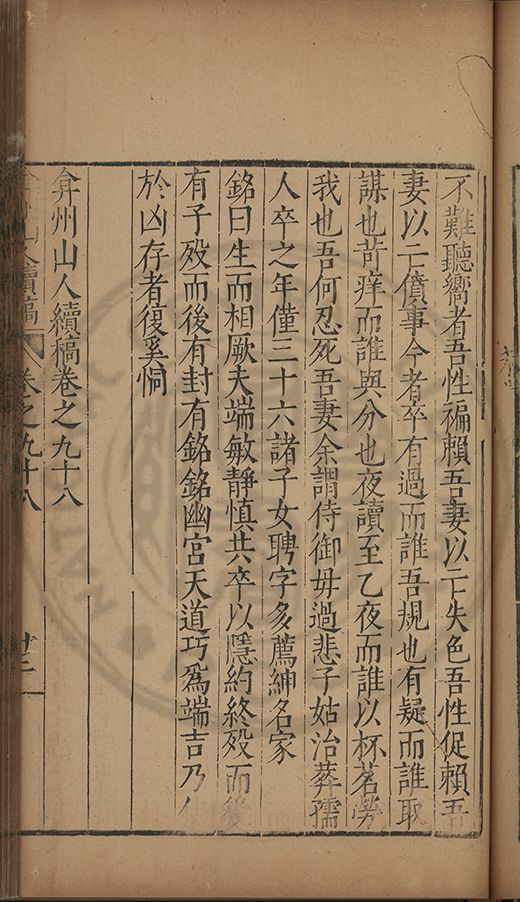 不難聽嚮者吾性褊賴吾妻以亡失色吾性促賴吾
妻以亡僨事今者卒有過而誰吾規也有疑而誰取
謀也苛痒而誰與分也夜讀至乙夜而誰以杯茗勞
我也吾何忍死吾妻余謂侍御毋過悲子姑治葬孺
人卒之年僅三十六諸子女聘字多薦紳名家
銘曰生而相厥夫端敏靜慎共卒以隱約終歿而後
有子歿而後有封有銘銘幽宮天道巧爲端吉乃
於凶存者復奚恫
弇州山人續稿卷之九十八
山人續稿 卷之九十八 廿二